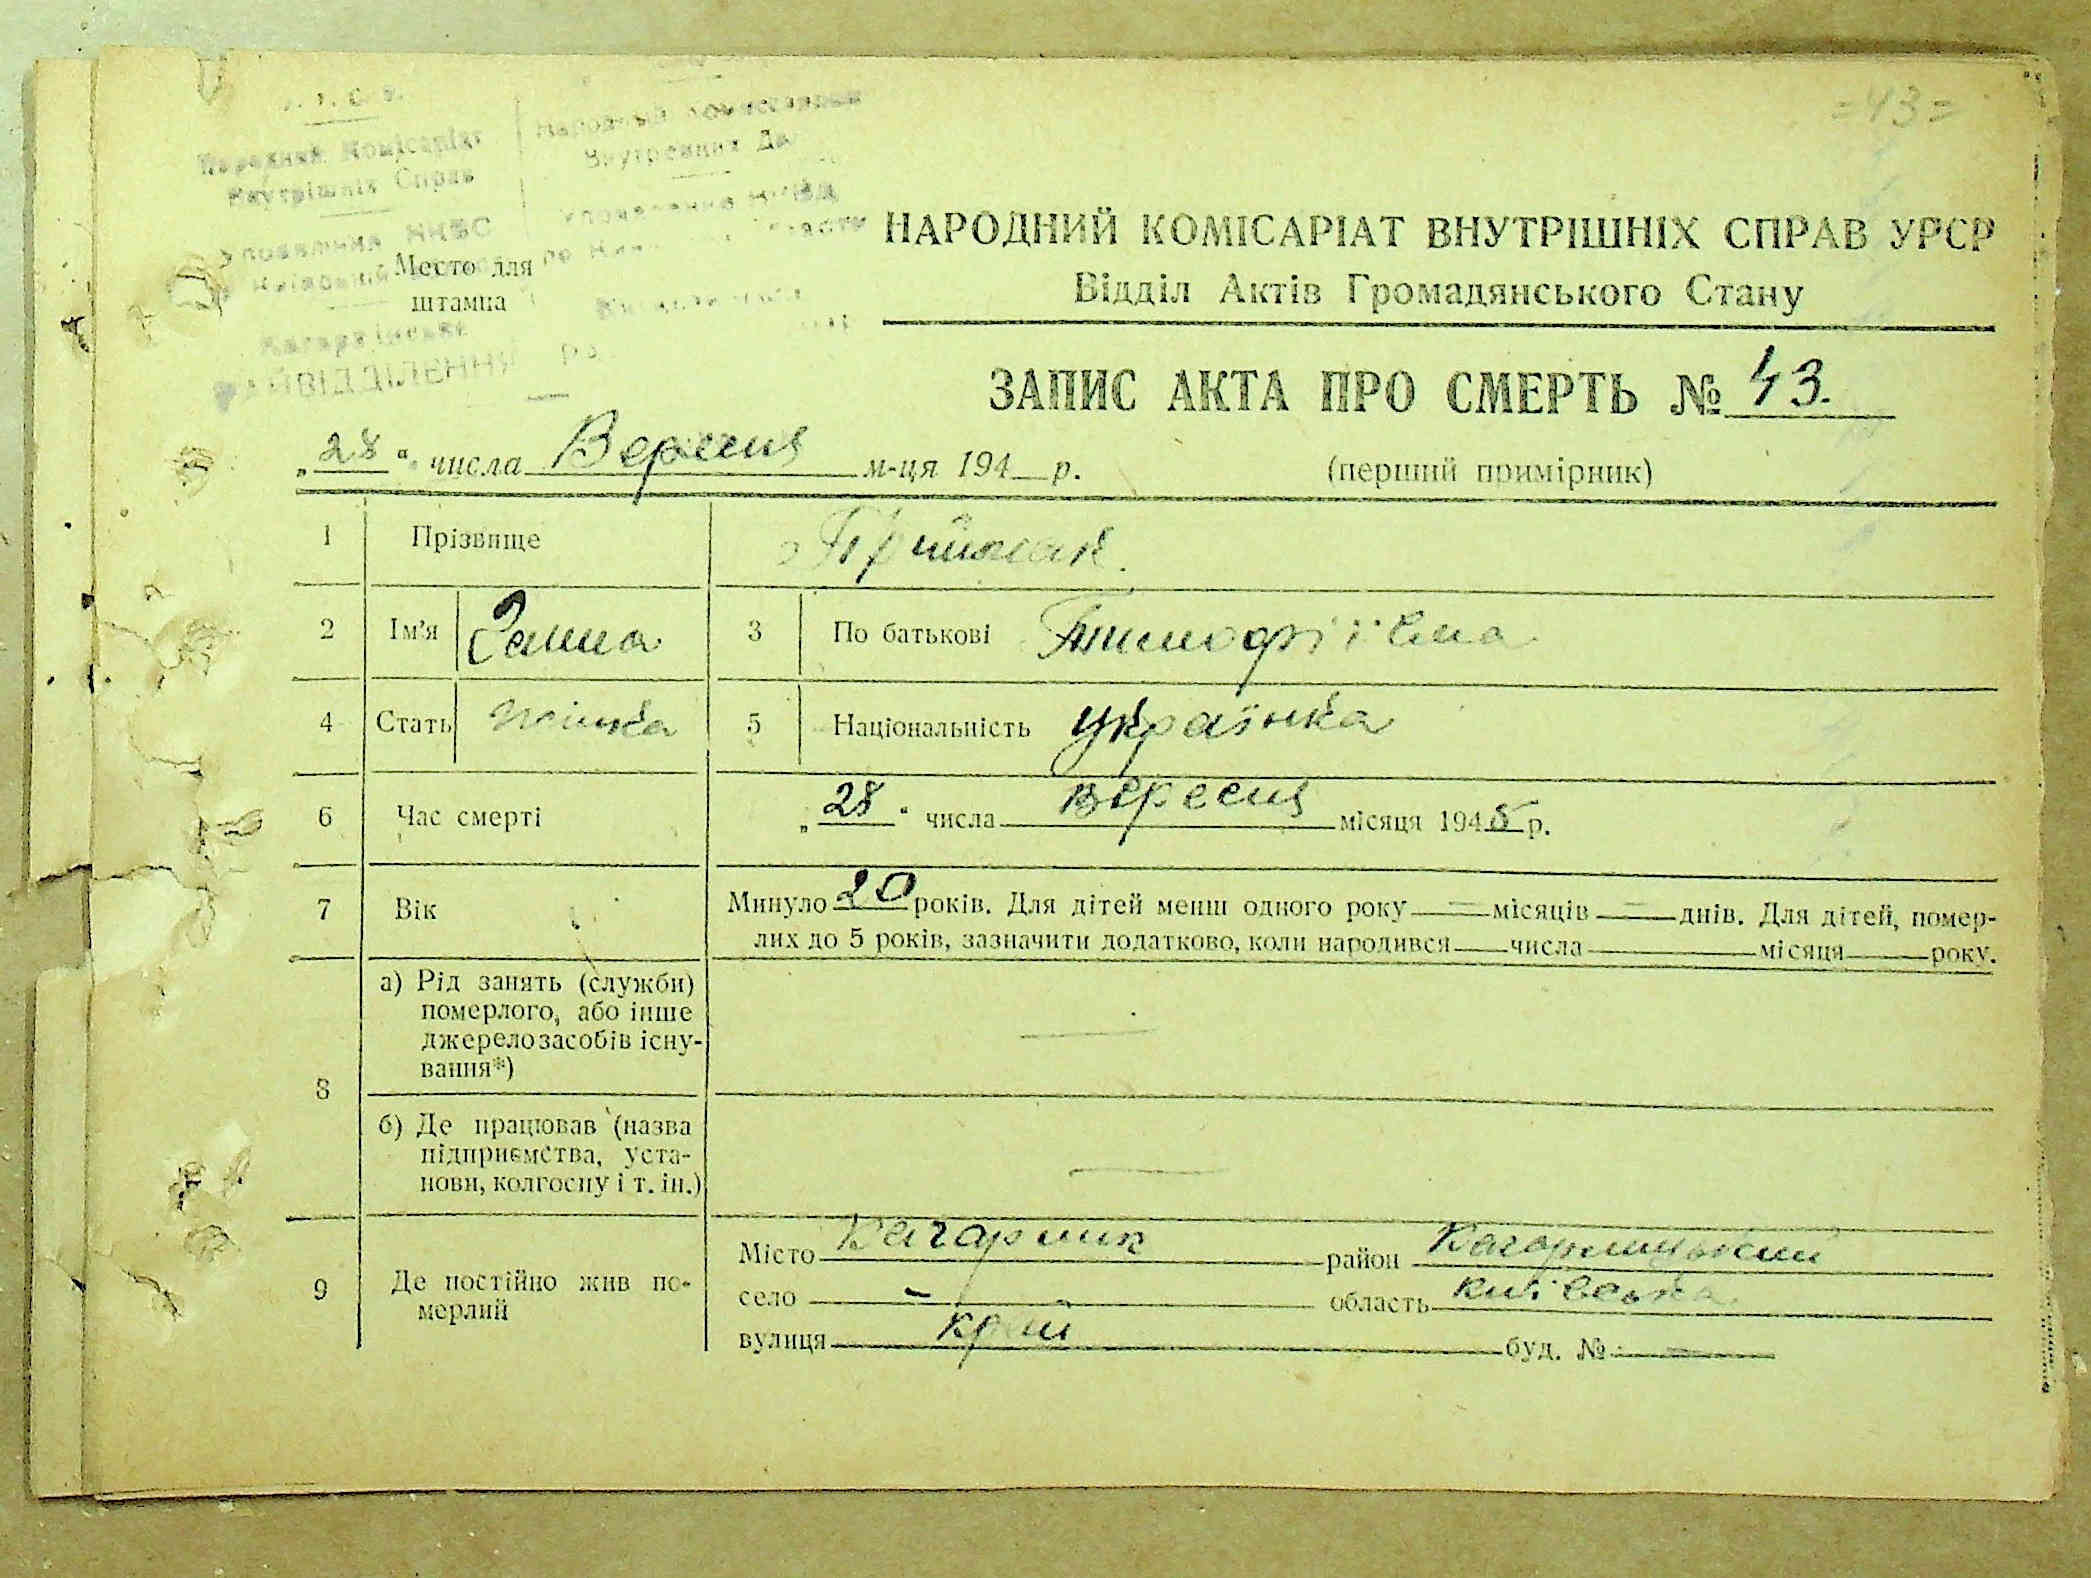 =43=
Народний Комісаріат
Внутрішніх Справ
Управління НКВС
Народный Комиссариат
Внутренних Дел
Управление НКВД
РАЙВІДДІЛЕННЯ
Место для
штампа
НАРОДНИЙ КОМІСАРІАТ ВНУТРІШНІХ СПРАВ УРСР
Відділ Актів Громадянського Стану
ЗАПИС АКТА ПРО СМЕРТЬ № 43.
„28“ числа Вересня м-ця 194 р. (перший примірник)
1 Прізвище Приймак
2 Ім'я Ганна 3 По батькові Тимофіївна
4 Стать жінка 5 Національність Українка
6 Час смерті „28“ числа вересня місяця 1945 р.
7 Вік Минуло 20 років. Для дітей менш одного року — місяців — днів. Для дітей, помер-
лих до 5 років, зазначити додатково, коли народився числа місяця року.
8 а) Рід занять (служби)
померлого, або інше
джерело засобів існу-
вання*) —
б) Де працював (назва
підприємства, уста-
нови, колгоспу і т. ін.) —
9 Де постійно жив по-
мерлий
Місто Кагарлик район Кагарлицький
село - область київська
вулиця буд. № —